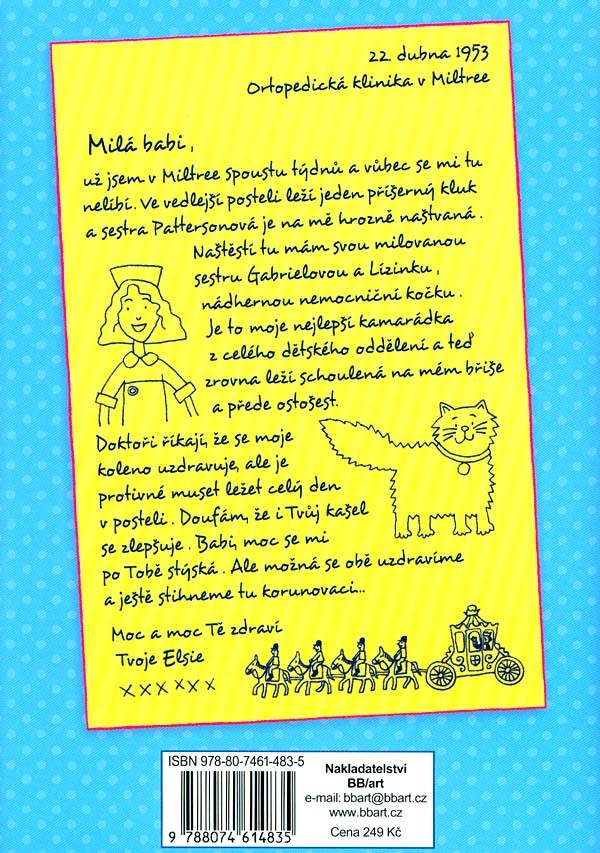 22. dubna 1953
Ortopedická klinika v Miltree
Milá babi,
už jsem v Miltree spoustu týdnů a vůbec se mi tu
nelíbí. Ve vedlejší posteli leží jeden příšerný kluk
a sestra Pattersonová je na mě hrozně naštvaná.
Naštěstí tu mám svou milovanou
sestru Gabrielovou a Lízinku,
nádhernou nemocniční kočku.
Je to moje nejlepší kamarádka
z celého dětského oddělení a teď
zrovna leží schoulená na mém břiše
a přede ostošest.
Doktoři říkají, že se moje
koleno uzdravuje, ale je
protivné muset ležet celý den
v posteli. Doufám, že i Tvůj kašel
se zlepšuje. Babi, moc se mi
po Tobě stýská. Ale možná se obě uzdravíme
a ještě stihneme tu korunovaci...
Moc a moc Tě zdraví
Tvoje Elsie
xxxxxx
ISBN 978-80-7461-483-5
9 788074 614835
Nakladatelství
BB/art
e-mail: bbart@bbart.cz
www.bbart.cz
Cena 249 Kč